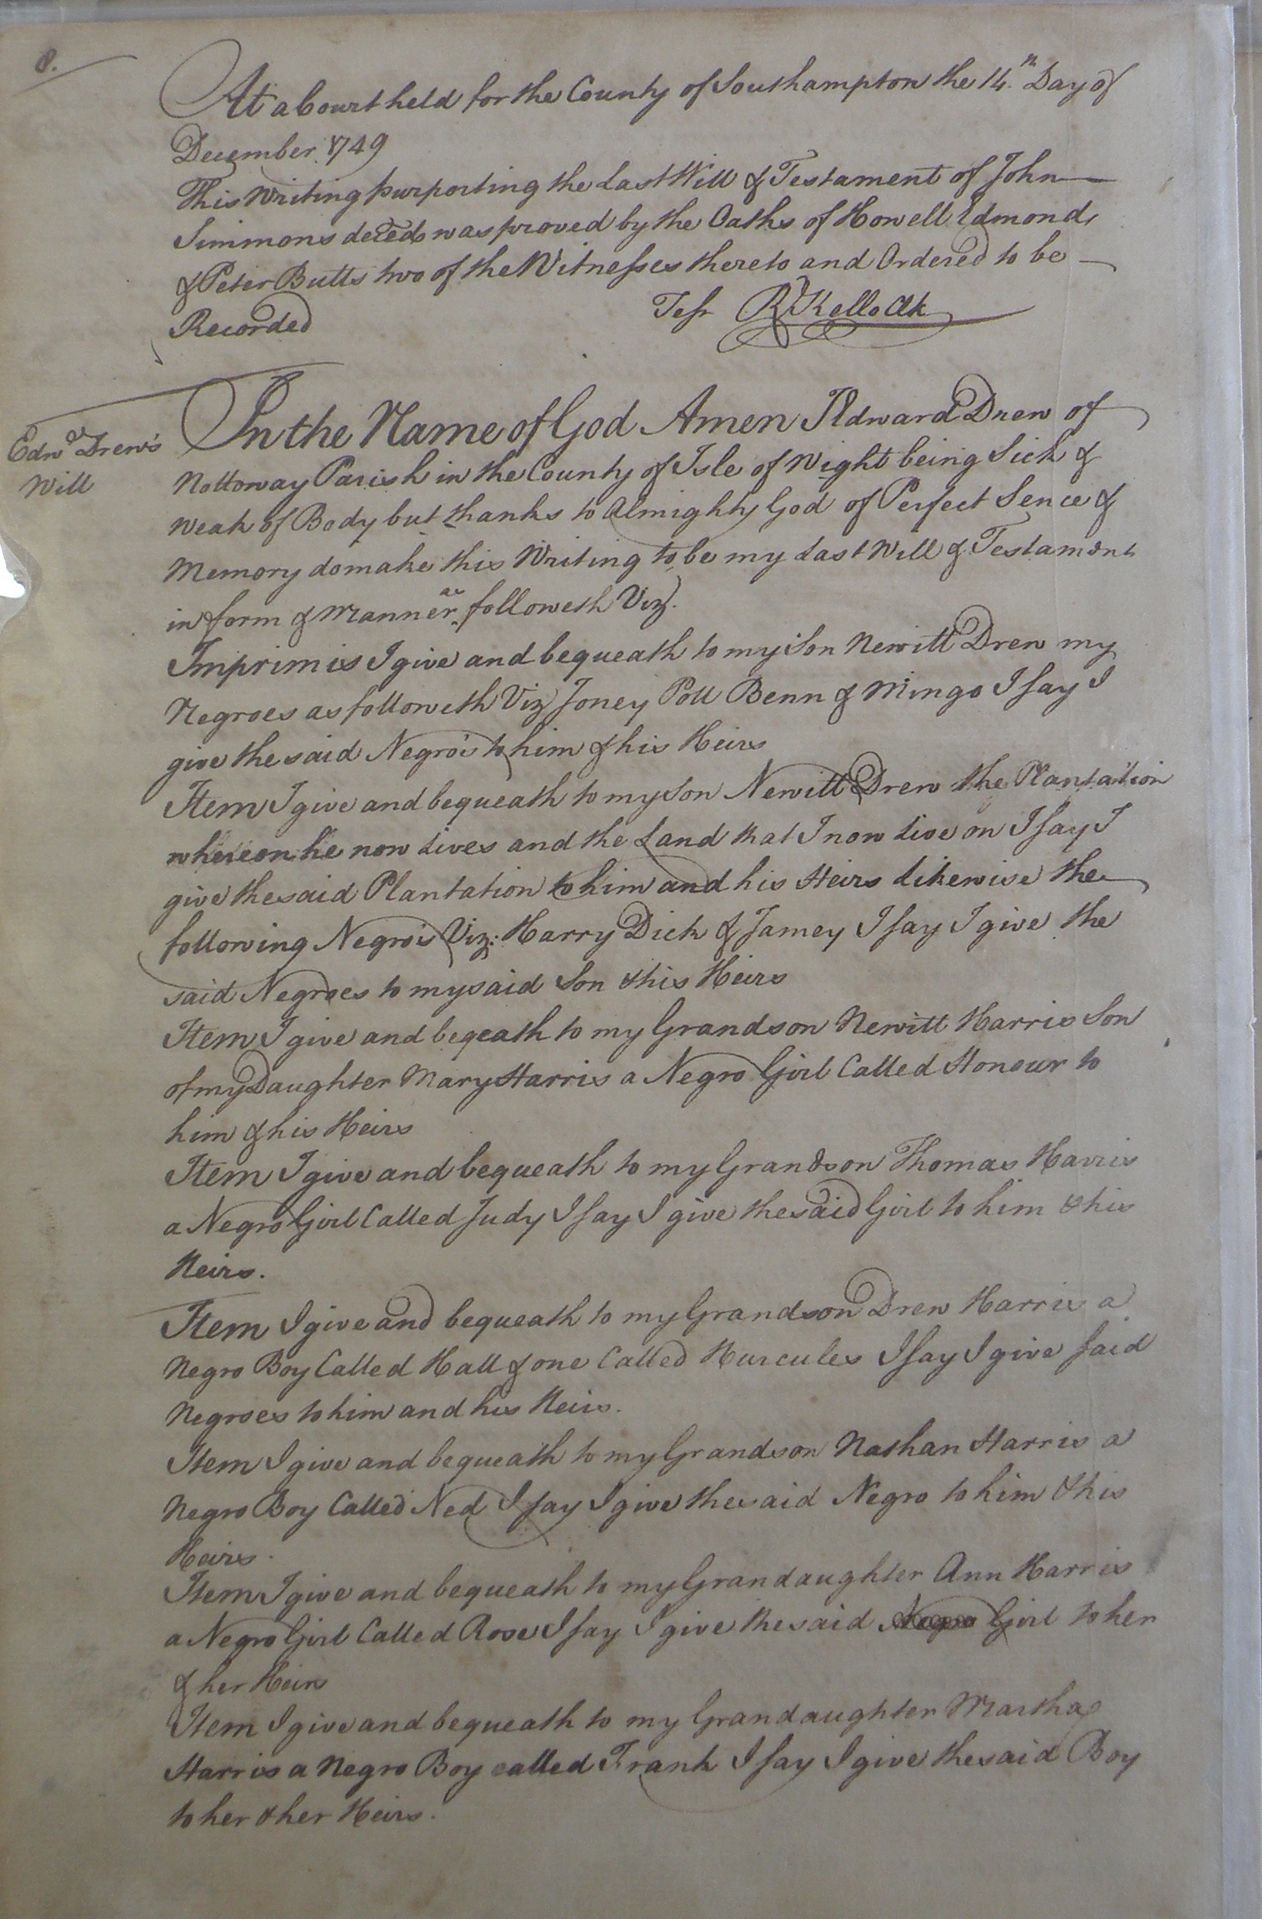 8.
At a Court held for the County of Southampton the 14.th Day of
December 1749
This Writing purporting the Last Will & Testament of John
Simmons deced was proved by the Oaths of Howell Edmonds
& Peter Butts two of the Witnesses thereto and Ordered to be
Recorded
Test Rd Kello Clk
Edwd Drew's
Will
In the Name of God Amen I Edward Drew of
Nottoway Parish in the County of Isle of Wight being Sick &
weak of Body but thanks to Almighty God of Perfect Sence &
Memory do make this Writing to be my Last Will & Testament
in form & Manner as followeth Viz.
Imprimis I give and bequeath to my Son Newitt Drew my
Negroes as followeth Viz Joney Poll Benn & Mingo I say I
give the said Negro's to him & his Heirs
Item I give and bequeath to my Son Newitt Drew the Plantation
whereon he now Lives and the Land that I now Live on I say I
give the said Plantation to him and his Heirs likewise the
following Negro's Viz: Harry Dick & Jamey I say I give the
said Negroes to my said Son & his Heirs
Item I give and beqeath to my Grandson Newitt Harris Son
of my Daughter Mary Harris a Negro Girl Called Honour to
him & his Heirs
Item I give and bequeath to my Grandson Thomas Harris
a Negro Girl Called Judy I say I give the said Girl to him & his
Heirs.
Item I give and bequeath to my Grandson Drew Harris a
Negro Boy Called Hall & one Called Hurcules I say I give said
Negroes to him and his Heirs.
Item I give and bequeath to my Grandson Nathan Harris a
Negro Boy Called Ned I say I give the said Negro to him & his
Heirs.
Item I give and bequeath to my Grandaughter Ann Harris
a Negro Girl Called Rose I say I give the said Negro Girl to her
& her Heirs
Item I give and bequeath to my Grandaughter Martha
Harris a Negro Boy called Frank I say I give the said Boy
to her & her Heirs.